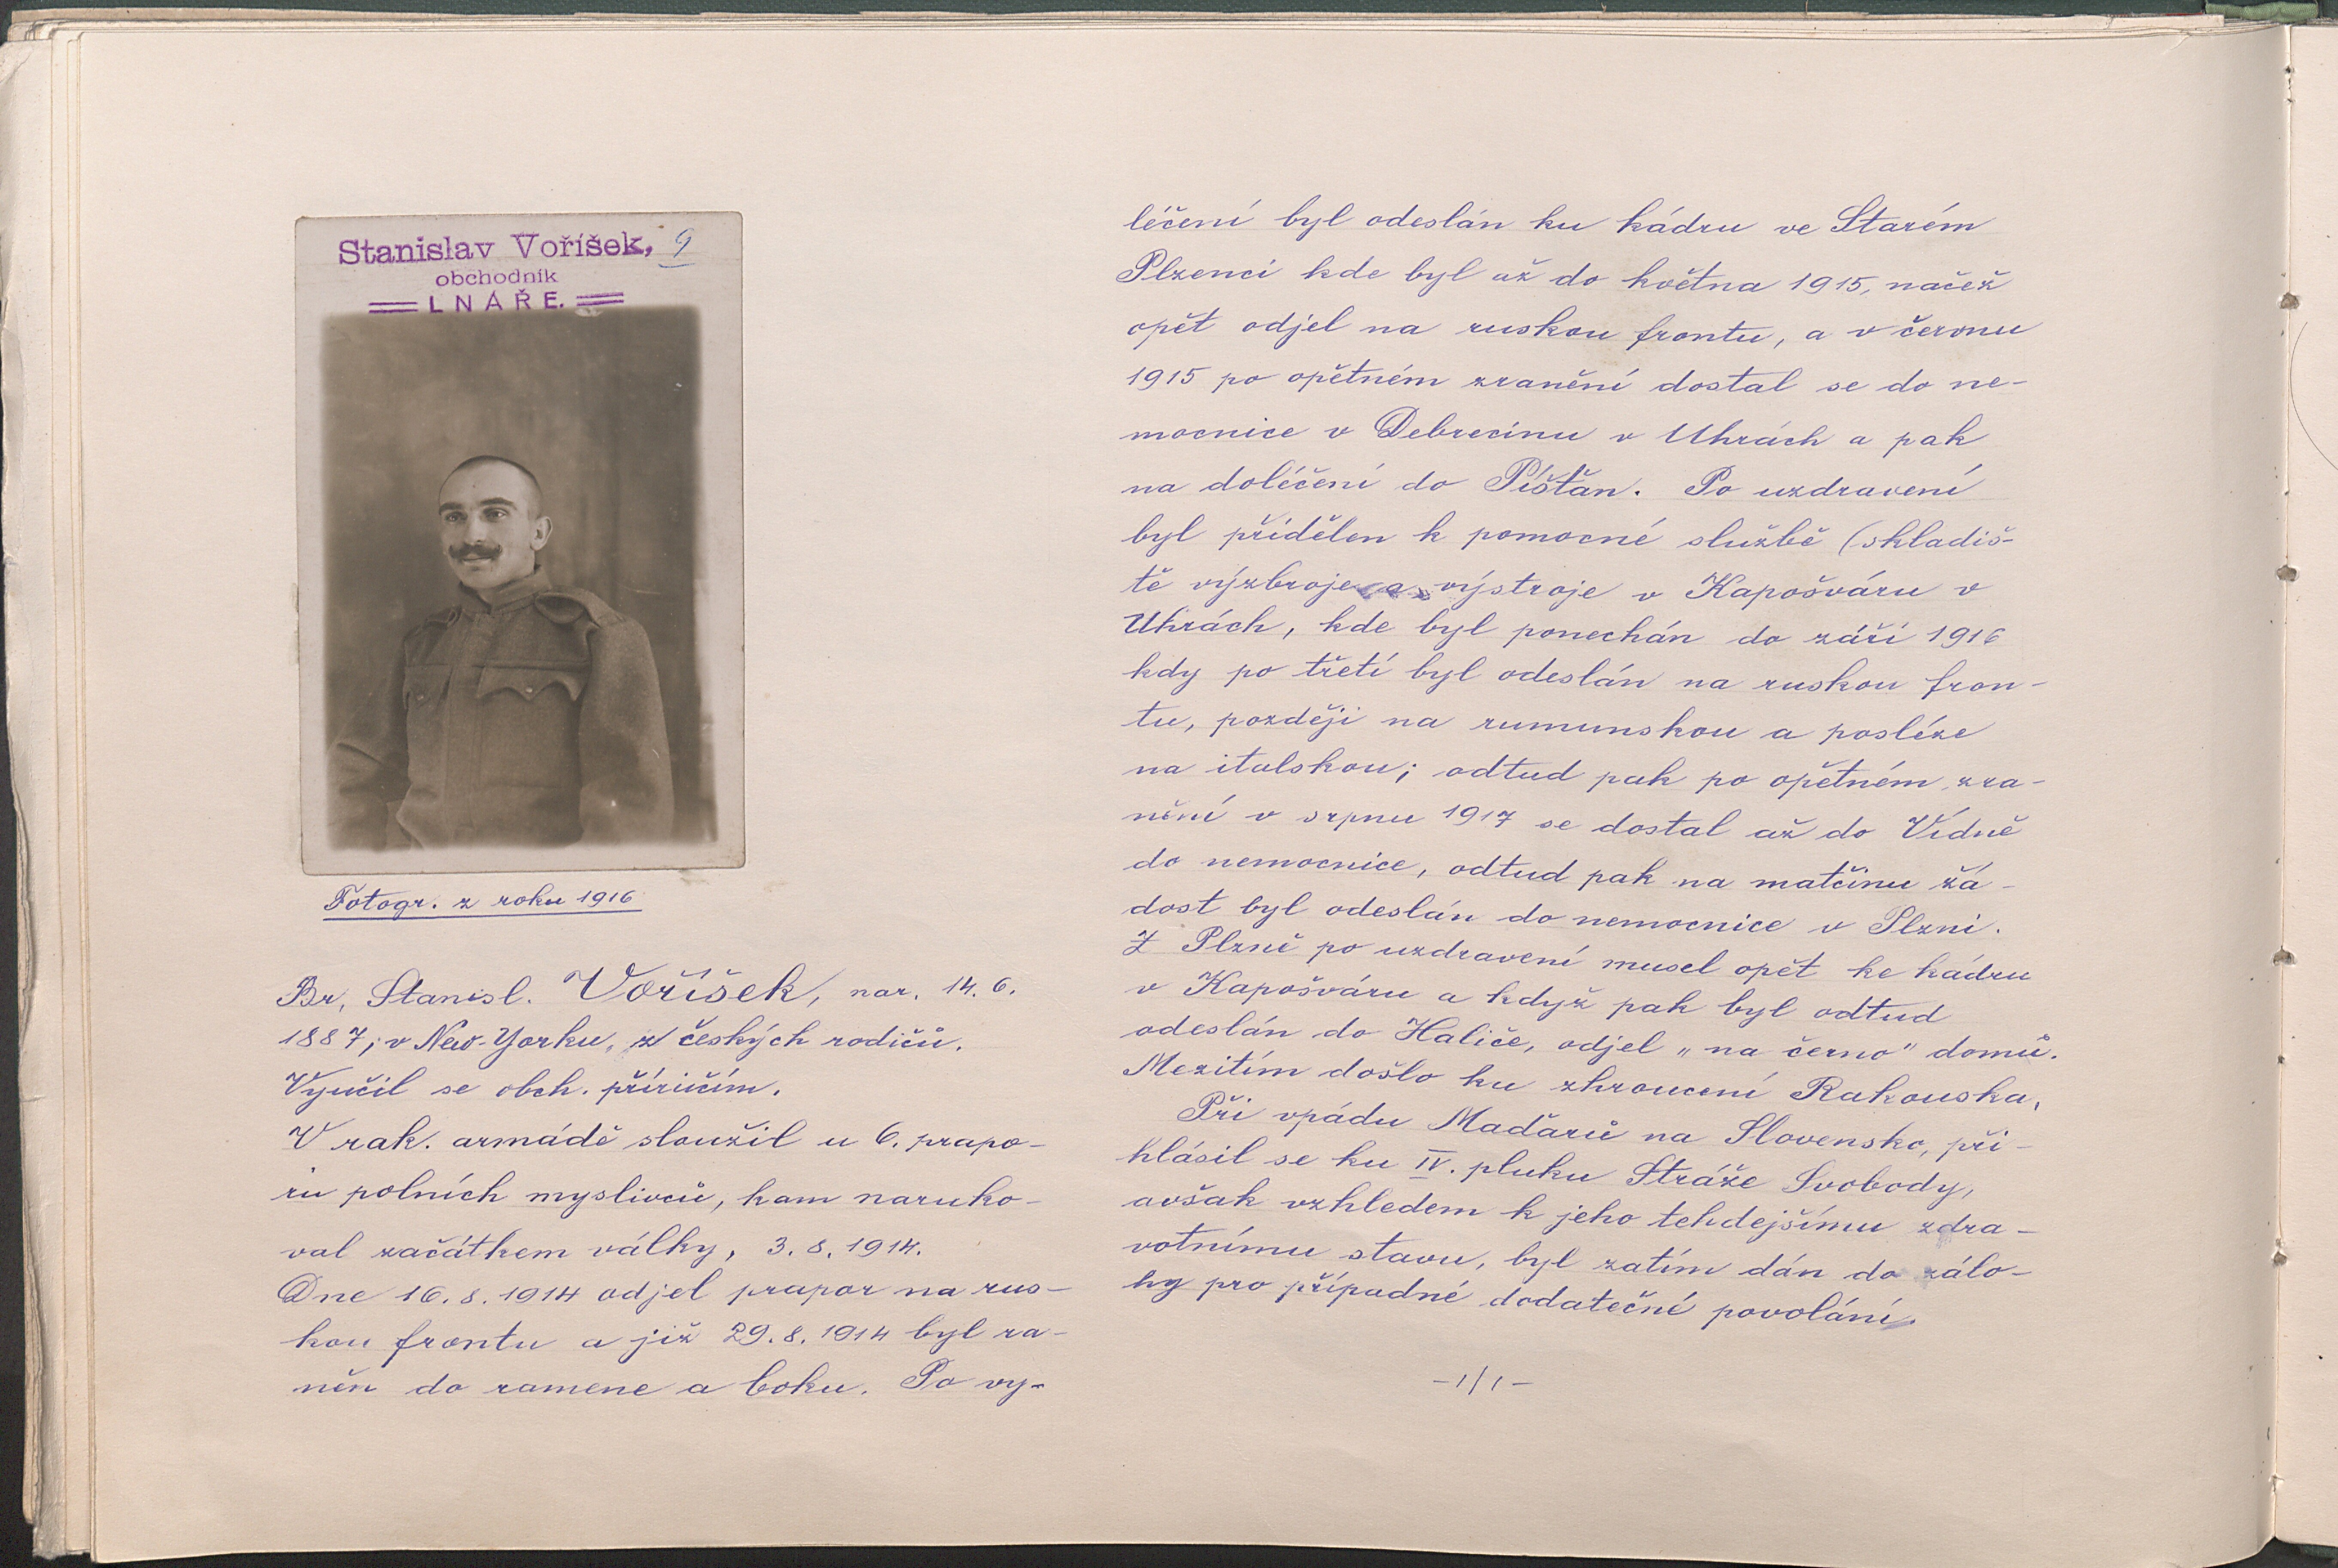 Stanislav Voříšek, 9
obchodník
LNÁŘE.
Fotogr. z roku 1916
Br. Stanisl. Voříšek, nar. 14. 6.
1887, v New-Yorku, z českých rodičů.
Vyučil se obch. příručím.
V rak. armádě sloužil u 6. prapo-
ru polních myslivců, kam naruko-
val začátkem války, 3. 8. 1914.
Dne 16. 8. 1914 odjel prapor na rus-
kou frontu a již 29. 8. 1914 byl ra-
něn do ramene a boku. Po vy-
léčení byl odeslán ku kádru ve Starém
Plzenci kde byl až do května 1915, načež
opět odjel na ruskou frontu, a v červnu
1915 po opětném zranění dostal se do ne-
mocnice v Debrecínu v Uhrách a pak
na doléčení do Píšťan. Po uzdravení
byl přidělen k pomocné službě (skladiš-
tě výzbroje a výstroje v Kapošváru v
Uhrách, kde byl ponechán do září 1916
kdy po třetí byl odeslán na ruskou fron-
tu, později na rumunskou a posléze
na italskou; odtud pak po opětném zra-
nění v srpnu 1917 se dostal až do Vídně
do nemocnice, odtud pak na matčinu žá-
dost byl odeslán do nemocnice v Plzni.
Z Plzně po uzdravení musel opět ke kádru
v Kapošváru a když pak byl odtud
odeslán do Haliče, odjel „na černo" domů.
Mezitím došlo ku zhroucení Rakouska.
Při vpádu Maďarů na Slovensko, při-
hlásil se ku IV. pluku Stráže Svobody,
avšak vzhledem k jeho tehdejšímu zdra-
votnímu stavu, byl zatím dán do zálo-
hy pro případné dodatečné povolání.
-1/1-